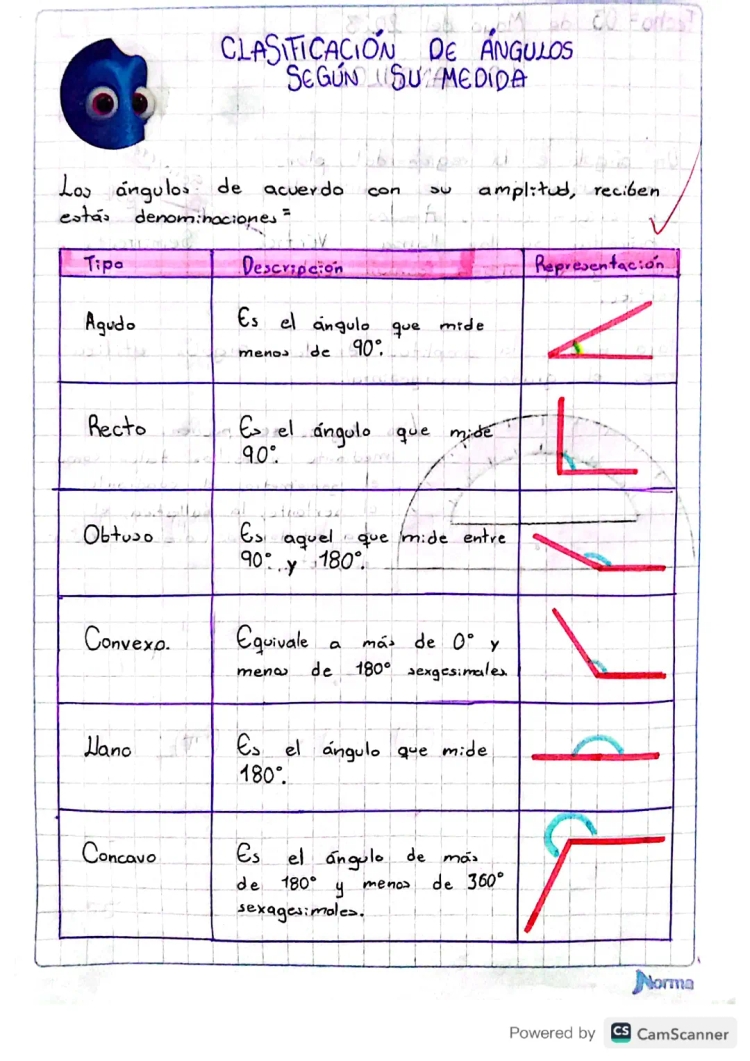 CLASIFICACIÓN DE ÁNGULOS
SEGÚN SU MEDIDA
Los ángulos de acuerdo con su amplitud, reciben
estás denominaciones =
Tipo Descripción Representación
Agudo
Es el ángulo que mide
menos de 90°.
Recto
Es el ángulo que mide
90°.
Obtuso
Es aquel que mide entre
90° y 180°.
Convexo.
Equivale a más de 0° y
menos de 180° sexgesimales
Llano
Es el ángulo que mide
180°.
Concavo
Es el ángulo de más
de 180° y menos de 360°
sexagesimales.
Norma
Powered by CS CamScanner